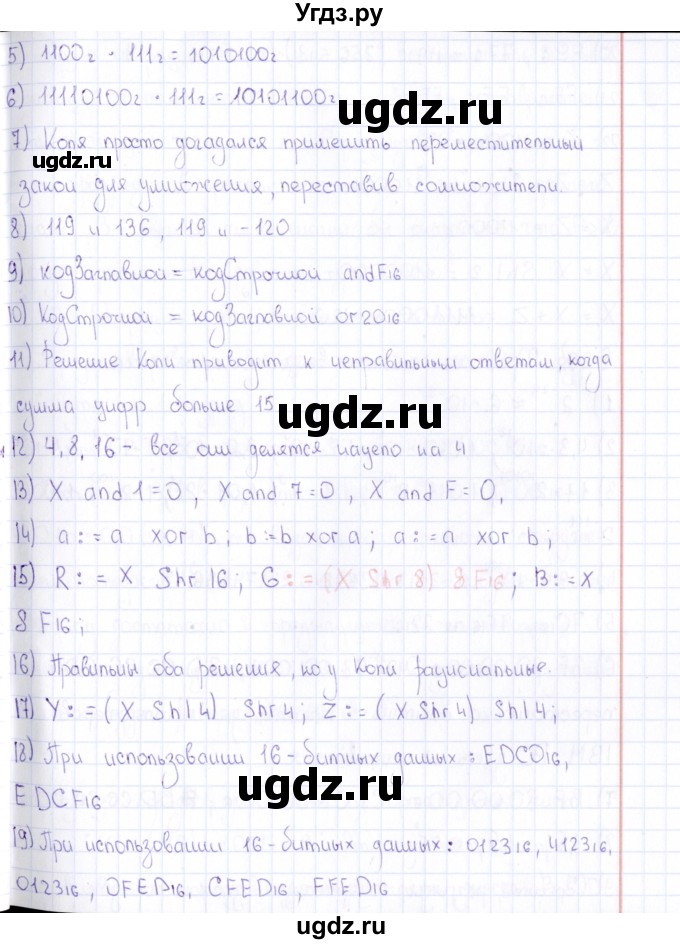 Угдз.ру
5) 1100₂ · 111₂ = 1010100₂
6) 11110100₂ · 111₂ = 10101100₂
ugdz.ru
7) Коля просто догадался применить переместительный
ugdz.ru
ugdz.ru
закон для умножения, переставив сомножители.
8) 119 и 136, 119 и -120
9) кодЗаглавной = кодСтрочной and F₁₆
10) КодСтрочной = кодЗаглавной or 20₁₆
11) Решение Коли приводит к неправильным ответам, когда
сумма цифр больше 15
ugdz.ru
ugdz.ru
12) 4, 8, 16 - все они делятся нацело на 4
13) X and 1 = 0, X and 7 = 0, X and F = 0,
14) a := a xor b; b := b xor a; a := a xor b;
15) R := X Shr 16; G := (X Shr 8) & F₁₆; B := X
& F₁₆;
16) Правильны оба решения, но у Коли рациональные.
17) Y := (X Shl 4) Shr 4; Z := (X Shr 4) Shl 4;
18) При использовании 16-битных данных: EDC0₁₆,
ugdz.ru
ugdz.ru
EDCF₁₆
19) При использовании 16-битных данных: 0123₁₆, 4123₁₆,
0123₁₆, 0FED₁₆, CFED₁₆, FFED₁₆
ugdz.ru